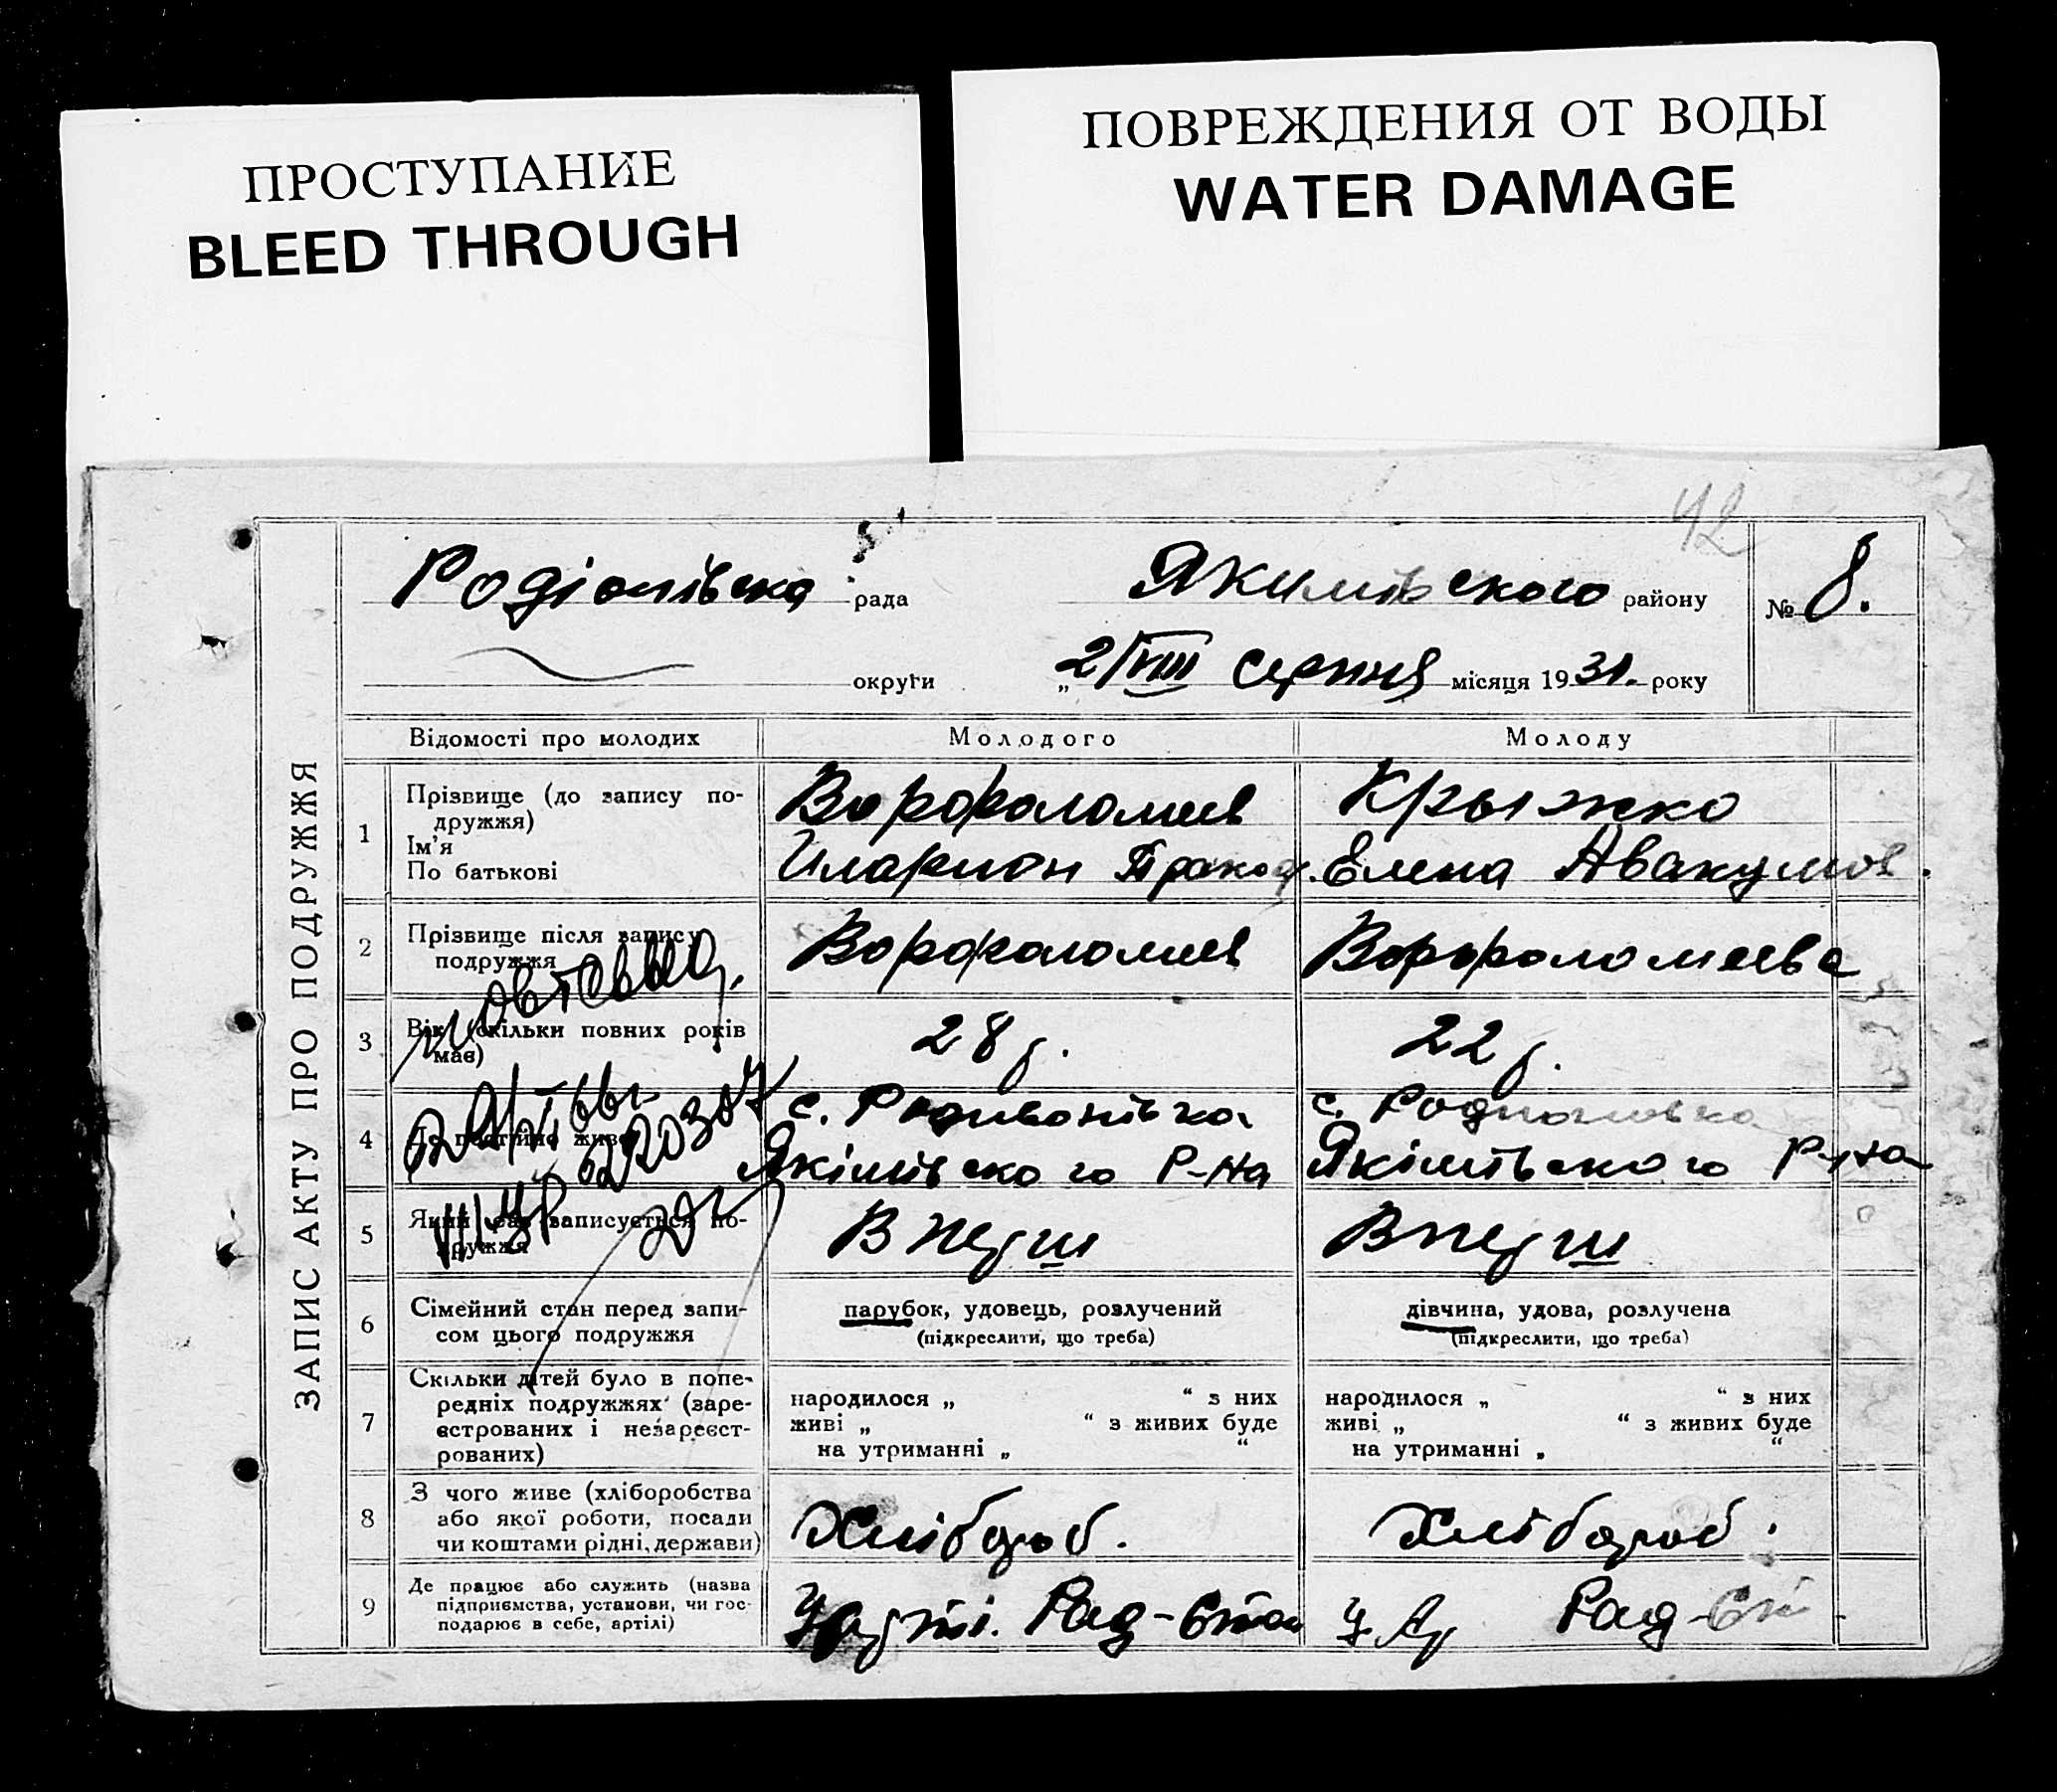 ПРОСТУПАНИЕ
BLEED THROUGH
ПОВРЕЖДЕНИЯ ОТ ВОДЫ
WATER DAMAGE
42
Родіонівска рада Якимівского району № 8.
округи „2/VIII Серпня місяця 1931. року
ЗАПИС АКТУ ПРО ПОДРУЖЖЯ
Відомості про молодих Молодого Молоду
1 Прізвище (до запису по-
дружжя)
Ім'я
По батькові
Ворфоломеев
Иларион
Крыжко
Елена Авакумов.
2 Прізвище після запису
подружжя
Ворфоломеев
Ворфоломеева
3 Вік (скільки повних років
має)
28 р.
22 р.
4 Де постійно живе
с. Родивонівка
Якімівского Р-на
с. Родионовка
Якімівского Р-на
5 Який раз записується по-
дружжя
Вперш
Вперш
6 Сімейний стан перед запи-
сом цього подружжя
парубок, удовець, розлучений
(підкреслити, що треба)
дівчина, удова, розлучена
(підкреслити, що треба)
7 Скільки дітей було в попе-
редніх подружжях (заре-
єстрованих і незареєст-
рованих)
народилося „ “ з них
живі „ “ з живих буде
на утриманні „ “
народилося „ “ з них
живі „ “ з живих буде
на утриманні „ “
8 З чого живе (хліборобства
або якої роботи, посади
чи коштами рідні, держави)
Хлібороб.
Хлібороб.
9 Де працює або служить (назва
підприємства, установи, чи гос-
подарює в себе, артілі)
У арті. Рад-Степ
У Ар Рад-Ст